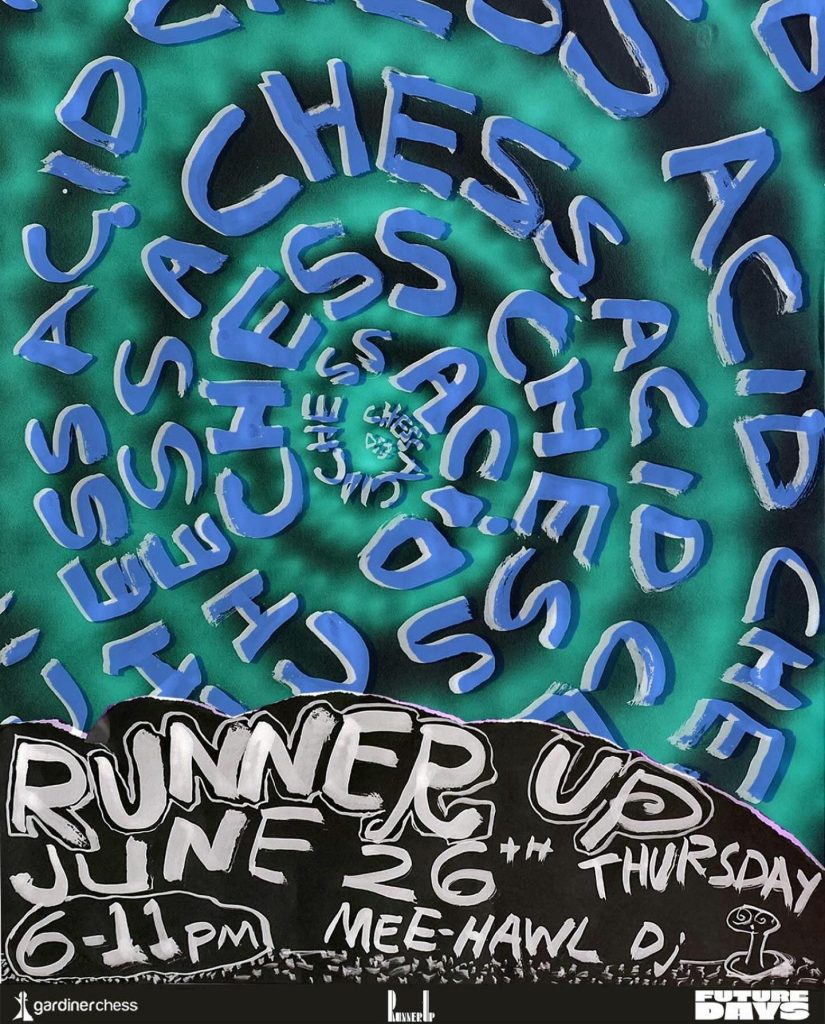 ACID CHE
HESS ACID
HESSA CHESS ACID C
CHESS CHESS
CHESS ACID
CHESS
RUNNER UP
JUNE 26TH THURSDAY
6-11PM MEE-HAWL Dj
gardinerchess RUNNER UP FUTURE DAYS